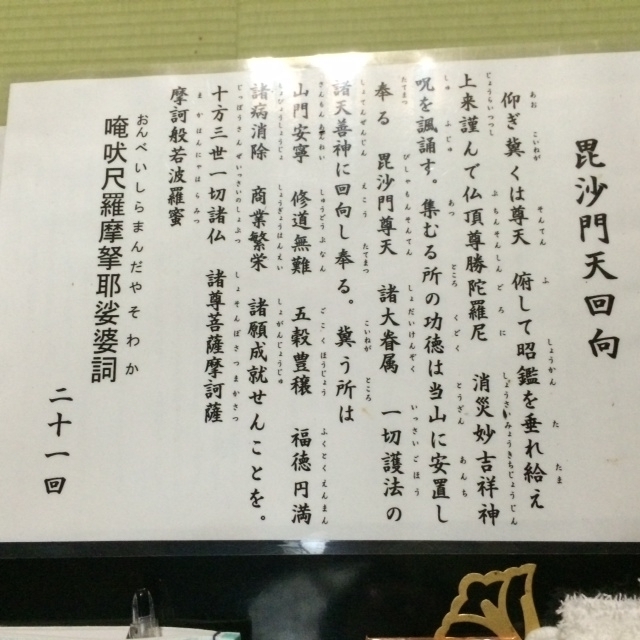 毘沙門天回向
仰ぎ冀くは尊天 俯して昭鑑を垂れ給え
上来謹んで仏頂尊勝陀羅尼 消災妙吉祥神
呪を諷誦す。集むる所の功徳は当山に安置し
奉る 毘沙門尊天 諸大眷属 一切護法の
諸天善神に回向し奉る。冀う所は
山門安寧 修道無難 五穀豊穣 福徳円満
諸病消除 商業繁栄 諸願成就せんことを。
十方三世一切諸仏 諸尊菩薩摩訶薩
摩訶般若波羅蜜
おんべいしらまんだやそわか
唵吠尸羅摩拏耶娑婆訶
二十一回